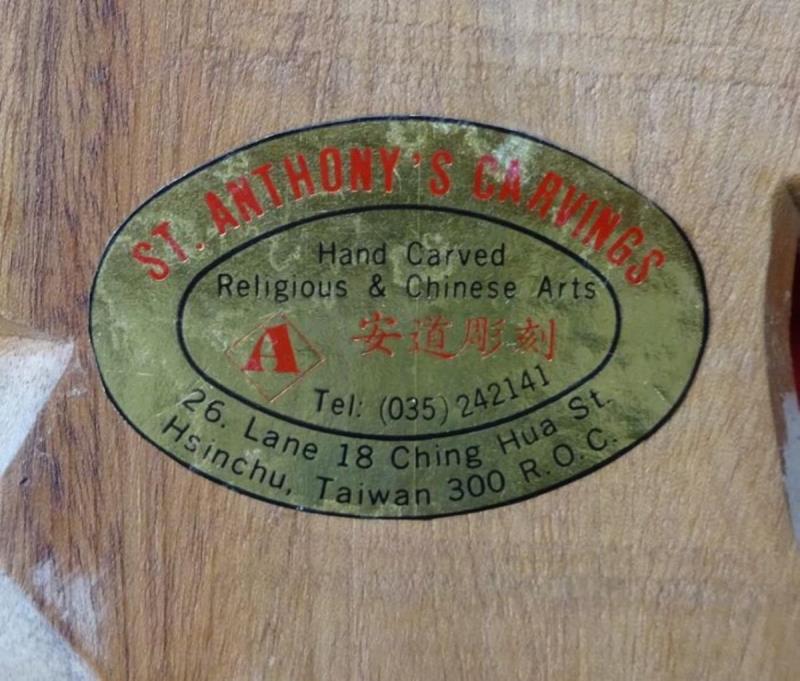 ST. ANTHONY'S CARVINGS
Hand Carved
Religious & Chinese Arts
A 安道彫刻
Tel: (035) 242141
26. Lane 18 Ching Hua St.
Hsinchu, Taiwan 300 R.O.C.